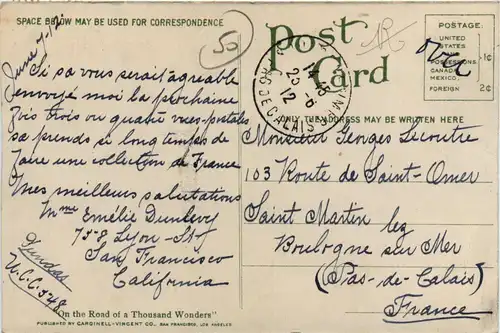 SPACE BELOW MAY BE USED FOR CORRESPONDENCE
Post Card
50
POSTAGE:
UNITED
STATES
POSSESSIONS
CANADA
MEXICO, 1¢
FOREIGN 2¢
25-6
12
CALAIS
ONLY THE ADDRESS MAY BE WRITTEN HERE
June 7-12
Si sa vous serait agreable
envoyé moi la prochaine
fois trois ou quatre vues-postales
sa prends si longtemps de
faire une collection de France
Mes meilleurs salutations
Mme Emélie Dunlevy
758 Lyon St
San Francisco
California
Monsieur Georges Lecoutre
103 Route de Saint-Omer
Saint Martin lez
Boulogne sur Mer
(Pas-de-Calais)
France
"On the Road of a Thousand Wonders"
PUBLISHED BY CARDINELL-VINCENT CO. SAN FRANCISCO, LOS ANGELES